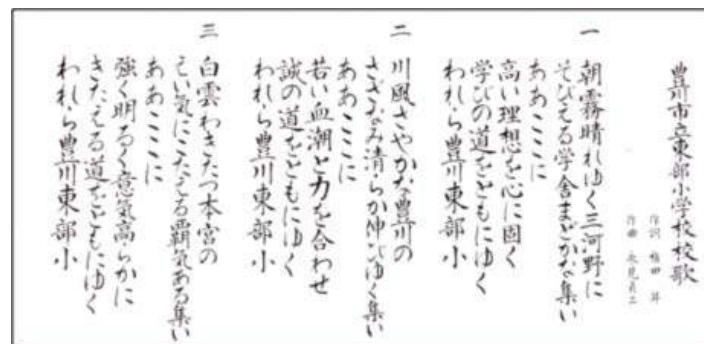 豊川市立東部小学校校歌
作詞 植田 昇
作曲 永見貞二
一
朝霧晴れゆく三河野に
そびえる学舎まどかな集い
ああここに
高い理想を心に固く
学びの道をともにゆく
われら豊川東部小
二
川風さやかな豊川の
さざなみ清らか伸びゆく集い
ああここに
若い血潮と力を合わせ
誠の道をともにゆく
われら豊川東部小
三
白雲わきたつ本宮の
せい気にこたえる覇気ある集い
ああここに
強く明るく意気高らかに
きたえる道をともにゆく
われら豊川東部小